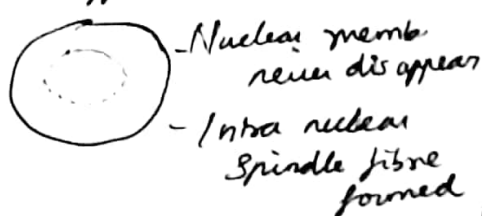 - Nuclear memb
never disappear
- Intra nuclear
Spindle fibre
formed